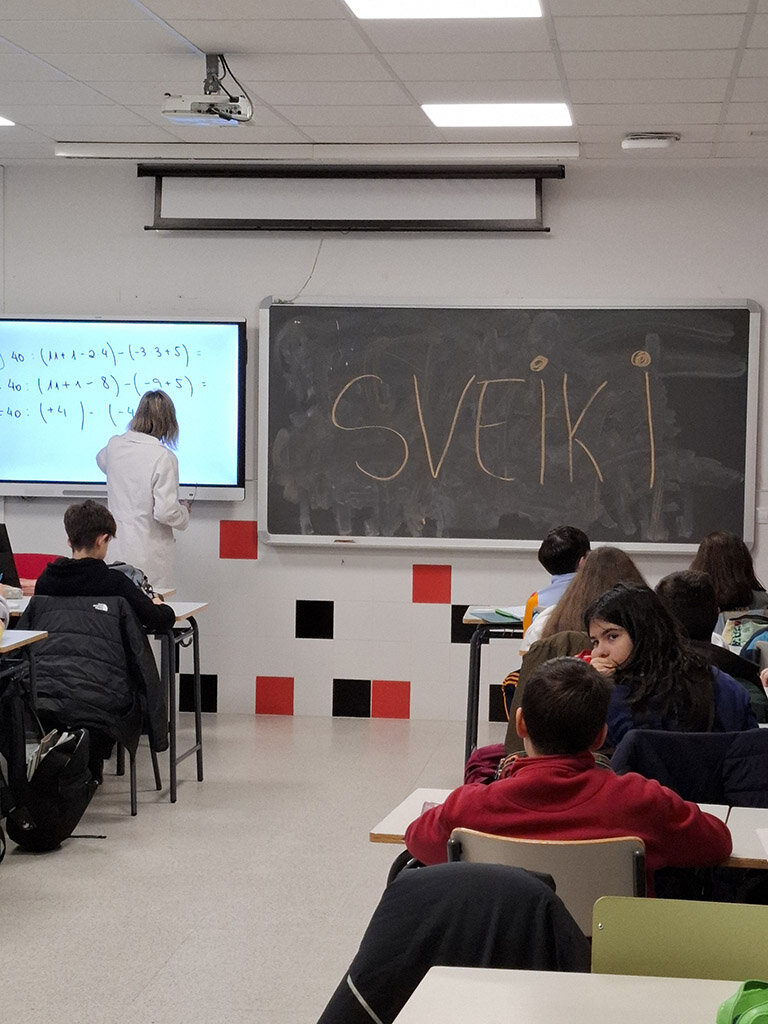 40 : (11+1-2·4)-(-3·3+5) =
40 : (11+1-8)-(-9+5) =
=40 : (+4 ) - (-4
SVEIKI